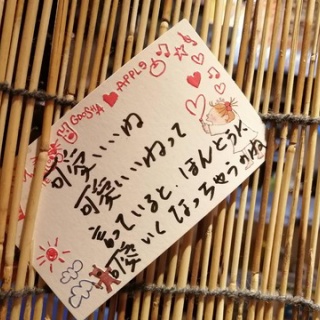 GOOSTA
APPLE
可愛いいね
可愛いいねって
言っていると、ほんとうに
可愛いくなっちゃうかね